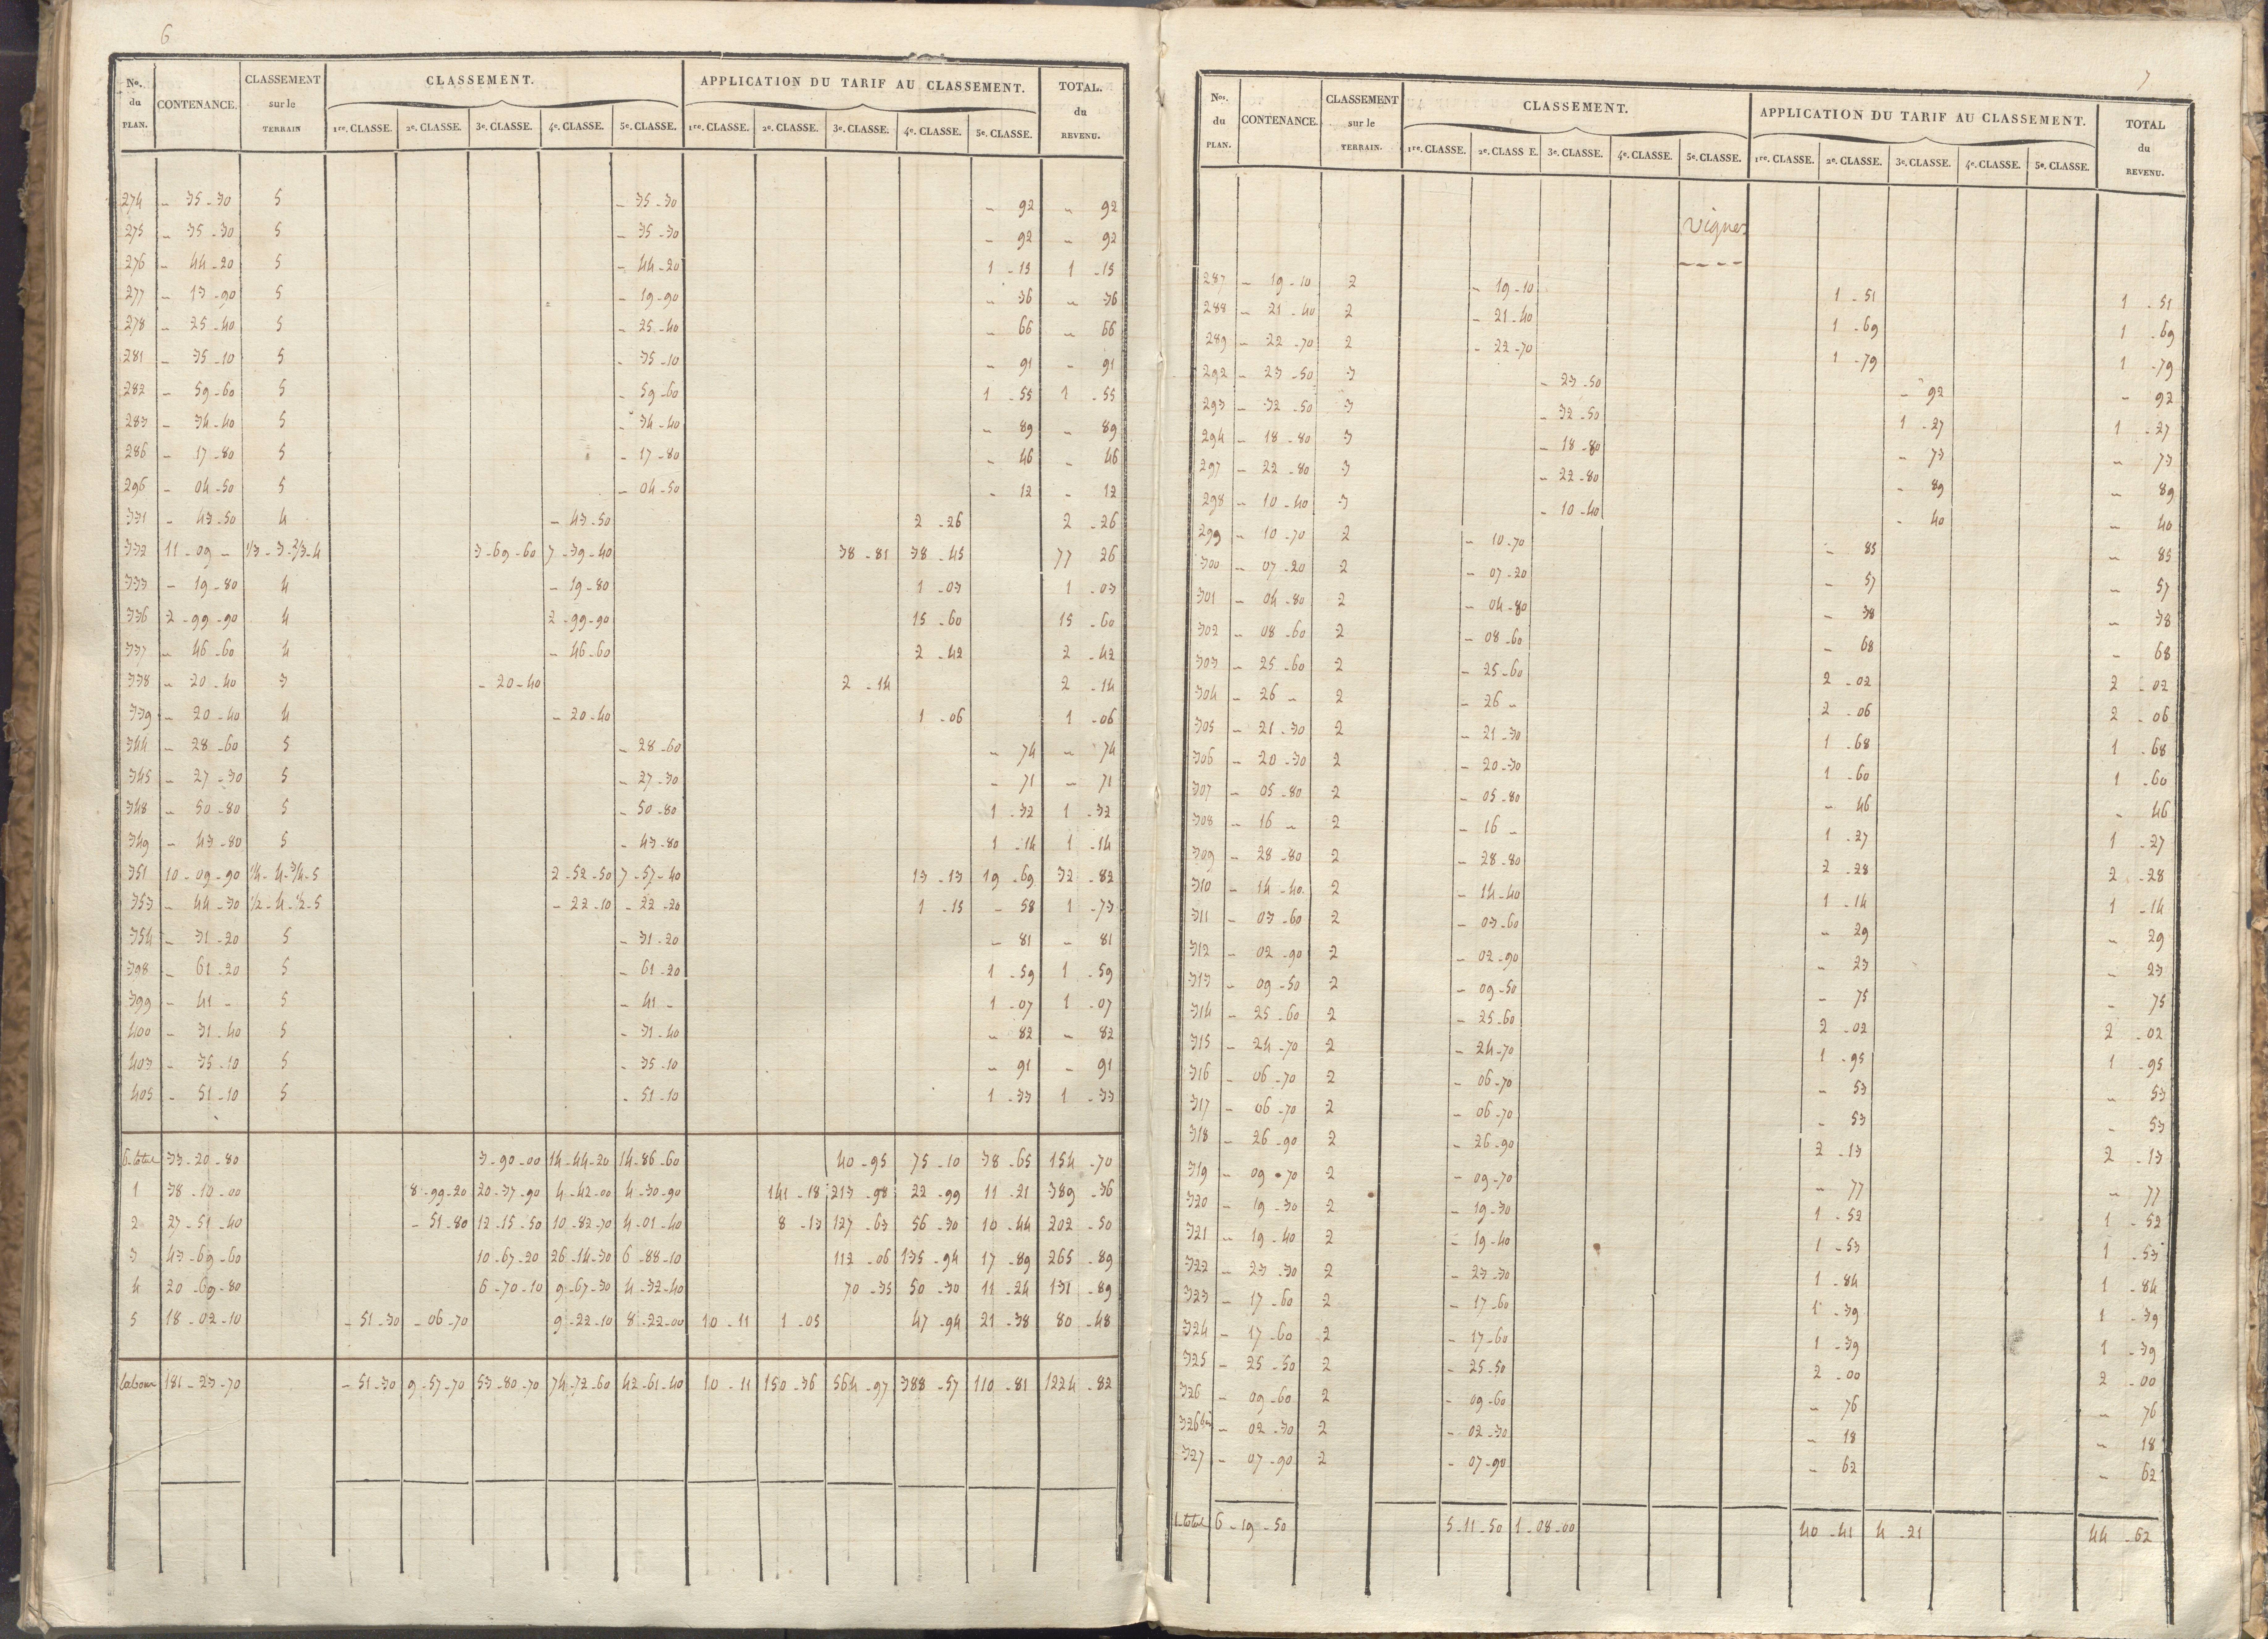 6
Nº. du PLAN. CONTENANCE. CLASSEMENT sur le TERRAIN CLASSEMENT. APPLICATION DU TARIF AU CLASSEMENT. TOTAL. du REVENU.
1re. CLASSE. 2e. CLASSE. 3e. CLASSE. 4e. CLASSE. 5e. CLASSE. 1re. CLASSE. 2e. CLASSE. 3e. CLASSE. 4e. CLASSE. 5e. CLASSE.
274 - 35-30 5 - 35-30 - 92 - 92
275 - 35-30 5 - 35-30 - 92 - 92
276 - 44-20 5 - 44-20 1-15 1-15
277 - 13-90 5 - 19-90 - 36 - 36
278 - 25-40 5 - 25-40 - 66 - 66
281 - 35-10 5 - 35-10 - 91 - 91
282 - 59-60 5 - 59-60 1-55 1-55
283 - 34-40 5 - 34-40 - 89 - 89
286 - 17-80 5 - 17-80 - 46 - 46
296 - 04-50 5 - 04-50 - 12 - 12
331 - 43-50 4 - 43-50 2-26 2-26
332 11-09 - 1/3-3-2/3-4 3-69-60 7-39-40 38-81 38-45 77 26
333 - 19-80 4 - 19-80 1-03 1-03
336 2-99-90 4 2-99-90 15-60 15-60
337 - 46-60 4 - 46-60 2-42 2-42
338 - 20-40 3 - 20-40 2-14 2-14
339 - 20-40 4 - 20-40 1-06 1-06
344 - 28-60 5 - 28-60 - 74 - 74
345 - 27-30 5 - 27-30 - 71 - 71
348 - 50-80 5 - 50-80 1-32 1-32
349 - 43-80 5 - 43-80 1-14 1-14
351 10-09-90 1/4-4-3/4-5 2-52-50 7-57-40 13-13 19-69 32-82
353 - 44-30 1/2-4-1/2-5 - 22-10 - 22-20 1-15 - 58 1-73
354 - 31-20 5 - 31-20 - 81 - 81
398 - 61-20 5 - 61-20 1-59 1-59
399 - 41 - 5 - 41 - 1-07 1-07
400 - 31-40 5 - 31-40 - 82 - 82
403 - 35-10 5 - 35-10 - 91 - 91
405 - 51-10 5 - 51-10 1-33 1-33
6-total 33-20-80 3-90-00 14-44-20 14-86-60 40-95 75-10 38-65 154-70
1 38-10-00 8-99-20 20-37-90 4-42-00 4-30-90 141-18 213-98 22-99 11-21 389-36
2 27-51-40 - 51-80 12-15-50 10-82-70 4-01-40 8-13 127-63 56-30 10-44 202-50
3 43-69-60 10-67-20 26-14-30 6-88-10 112-06 135-94 17-89 265-89
4 20-69-80 6-70-10 9-67-30 4-32-40 70-35 50-30 11-24 131-89
5 18-02-10 - 51-30 - 06-70 9-22-10 8-22-00 10-11 1-05 47-94 21-38 80-48
labour 181-23-70 - 51-30 9-57-70 53-80-70 74-72-60 42-61-40 10-11 150-36 564-97 388-57 110-81 1224-82
7
Nos. du PLAN. CONTENANCE. CLASSEMENT sur le TERRAIN. CLASSEMENT. APPLICATION DU TARIF AU CLASSEMENT. TOTAL du REVENU.
1re. CLASSE. 2e. CLASS E. 3e. CLASSE. 4e. CLASSE. 5e. CLASSE. 1re. CLASSE. 2e. CLASSE. 3e. CLASSE. 4e. CLASSE. 5e. CLASSE.
Vignes
287 - 19-10 2 - 19-10 1-51 1-51
288 - 21-40 2 - 21-40 1-69 1-69
289 - 22-70 2 - 22-70 1-79 1-79
292 - 23-50 3 - 23-50 - 92 - 92
293 - 32-50 3 - 32-50 1-27 1-27
294 - 18-80 3 - 18-80 - 73 - 73
297 - 22-80 3 - 22-80 - 89 - 89
298 - 10-40 3 - 10-40 - 40 - 40
299 - 10-70 2 - 10-70 - 85 - 85
300 - 07-20 2 - 07-20 - 57 - 57
301 - 04-80 2 - 04-80 - 38 - 38
302 - 08-60 2 - 08-60 - 68 - 68
303 - 25-60 2 - 25-60 2-02 2-02
304 - 26 - 2 - 26 - 2-06 2-06
305 - 21-30 2 - 21-30 1-68 1-68
306 - 20-30 2 - 20-30 1-60 1-60
307 - 05-80 2 - 05-80 - 46 - 46
308 - 16 - 2 - 16 - 1-27 1-27
309 - 28-80 2 - 28-80 2-28 2-28
310 - 14-40 2 - 14-40 1-14 1-14
311 - 03-60 2 - 03-60 - 29 - 29
312 - 02-90 2 - 02-90 - 23 - 23
313 - 09-50 2 - 09-50 - 75 - 75
314 - 25-60 2 - 25-60 2-02 2-02
315 - 24-70 2 - 24-70 1-95 1-95
316 - 06-70 2 - 06-70 - 53 - 53
317 - 06-70 2 - 06-70 - 53 - 53
318 - 26-90 2 - 26-90 2-13 2-13
319 - 09-70 2 - 09-70 - 77 - 77
320 - 19-30 2 - 19-30 1-52 1-52
321 - 19-40 2 - 19-40 1-53 1-53
322 - 23-30 2 - 23-30 1-84 1-84
323 - 17-60 2 - 17-60 1-39 1-39
324 - 17-60 2 - 17-60 1-39 1-39
325 - 25-50 2 - 25-50 2-00 2-00
326 - 09-60 2 - 09-60 - 76 - 76
326bis - 02-30 2 - 02-30 - 18 - 18
327 - 07-90 2 - 07-90 - 62 - 62
1-total 6-19-50 5-11-50 1-08-00 40-41 4-21 44-62